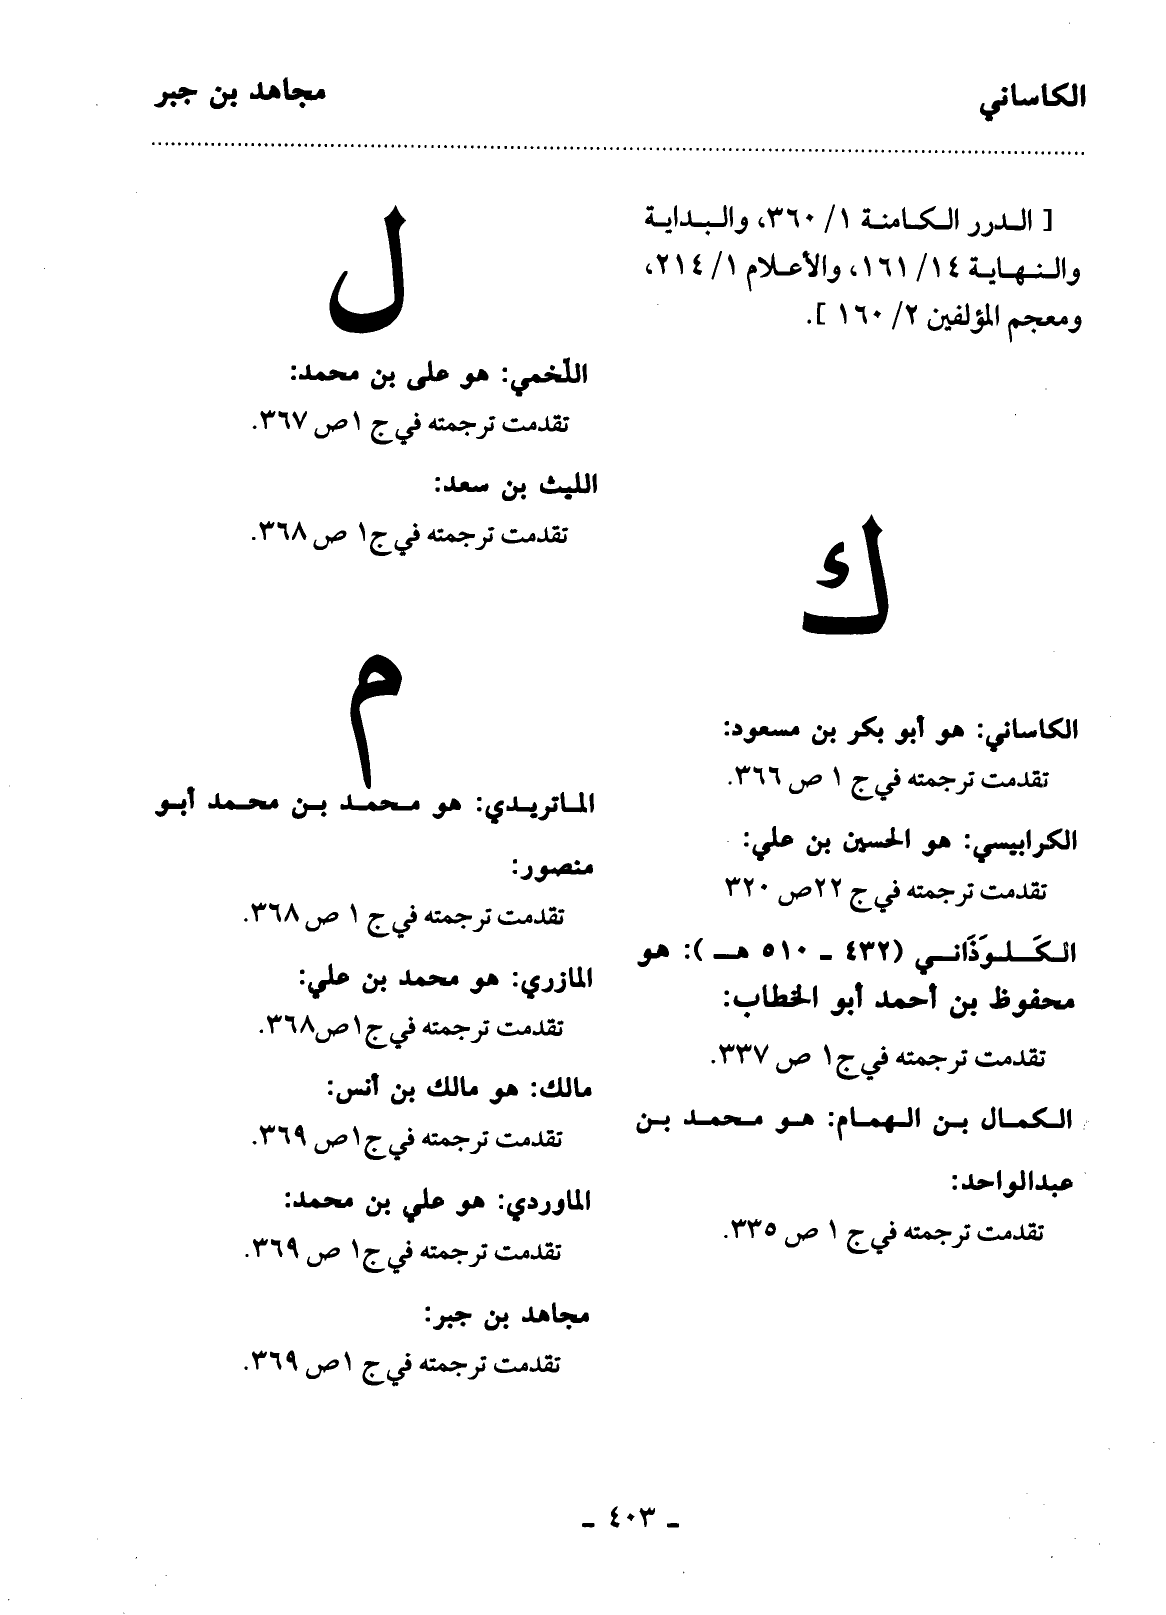 الكاساني
مجاهد بن جبر
[ الدرر الكامنة ١/ ٣٦٠، والبداية
والنهاية ١٤/ ١٦١، والأعلام ١/ ٢١٤،
ومعجم المؤلفين ٢/ ١٦٠ ].
ك
الكاساني: هو أبو بكر بن مسعود:
تقدمت ترجمته في ج ١ ص ٣٦٦.
الكرابيسي: هو الحسين بن علي:
تقدمت ترجمته في ج ٢٢ص ٣٢٠
الكَلوَذَاني (٤٣٢ ـ ٥١٠ هـ ): هو
محفوظ بن أحمد أبو الخطاب:
تقدمت ترجمته في ج١ ص ٣٣٧.
الكمال بن الهمام: هو محمد بن
عبدالواحد:
تقدمت ترجمته في ج ١ ص ٣٣٥.
ل
اللّخمي: هو على بن محمد:
تقدمت ترجمته في ج ١ص ٣٦٧.
الليث بن سعد:
تقدمت ترجمته في ج١ ص ٣٦٨.
م
الماتريدي: هو محمد بن محمد أبو
منصور:
تقدمت ترجمته في ج ١ ص ٣٦٨.
المازري: هو محمد بن علي:
تقدمت ترجمته في ج١ص٣٦٨.
مالك: هو مالك بن أنس:
تقدمت ترجمته في ج١ص ٣٦٩.
الماوردي: هو علي بن محمد:
تقدمت ترجمته في ج١ ص ٣٦٩.
مجاهد بن جبر:
تقدمت ترجمته في ج ١ص ٣٦٩.
ـ ٤٠٣ ـ